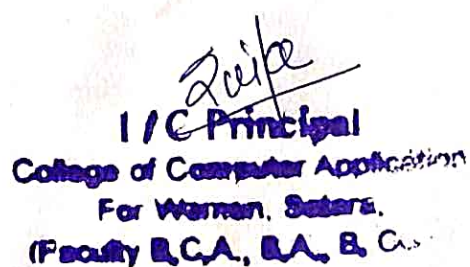 I/C Principal
College of Computer Application
For Women, Satara.
(Faculty B.C.A., B.A., B. Co